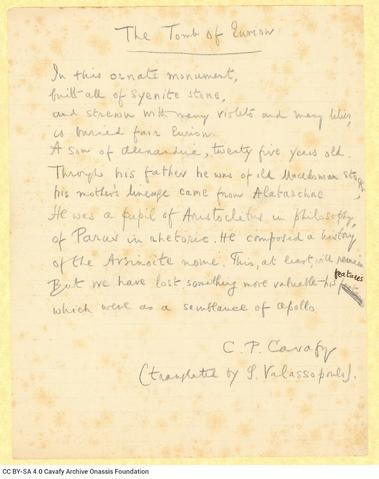 The Tomb of Eurion
In this ornate monument,
built all of syenite stone,
and strewn with many violets and many lilies,
is buried fair Eurion.
A son of Alexandria, twenty five years old.
Through his father he was of old Macedonian
his mother's lineage came from Alabarchae
He was a pupil of Aristoclitus in philosophy,
of Parus in rhetoric. He composed a history
of the Arsinoite nome. This, at least, will remain
But we have lost something more valuable – his features
which were as a semblance of Apollo.
C. P. Cavafy
(translated by G. Valassopoulo).
CC BY-SA 4.0 Cavafy Archive Onassis Foundation